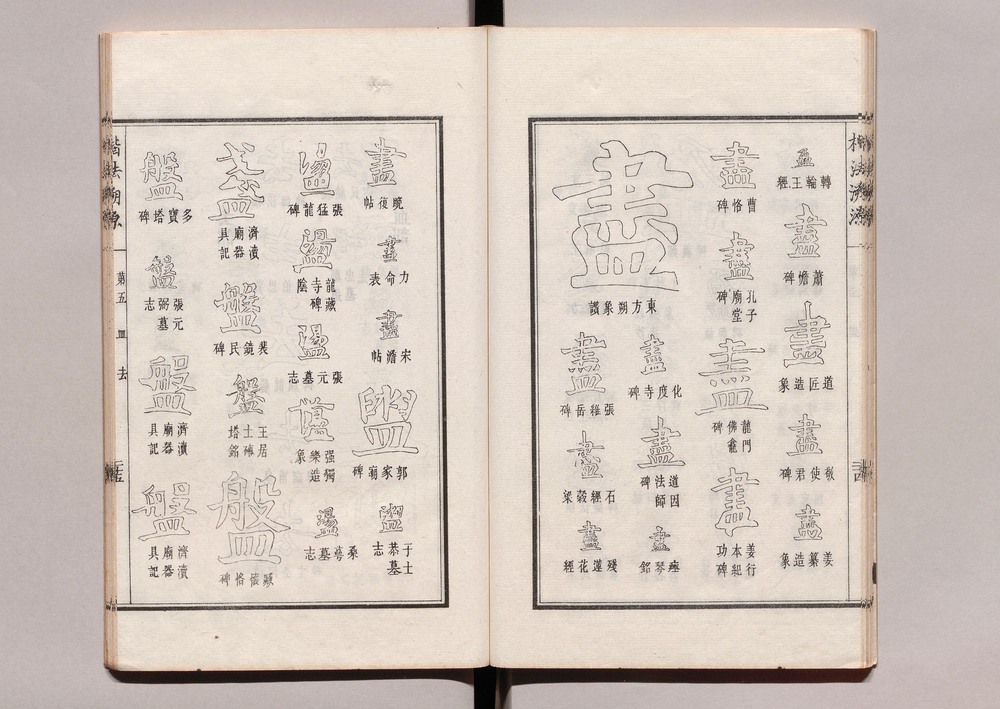 盡
轉輪王經
盡
蕭憺碑
盡
道匠造象
盡
敬使君碑
盡
姜纂造象
盡
曹恪碑
盡
孔子廟堂碑
盡
龍門佛龕碑
盡
姜行本紀功碑
盡
東方朔象讚
盡
化度寺碑
盡
道因法師碑
盡
瘞琴銘
盡
張稚岳碑
盡
石經穀梁
盡
殘蓮花經
盡
晚復帖
盡
力命表
盡
宋儋帖
盥
郭家廟碑
盥
于士恭墓志
盪
張猛龍碑
盪
龍藏寺碑陰
盪
張元墓志
强獨樂造象
盪
桑萼墓志
濟瀆廟器具記
盤
裴鏡民碑
盤
王居士磚塔銘
盤
盤
多寶塔碑
盤
張元弼墓志
盤
濟瀆廟器具記
盤
濟瀆廟器具記
楷法溯源
第五
皿
去